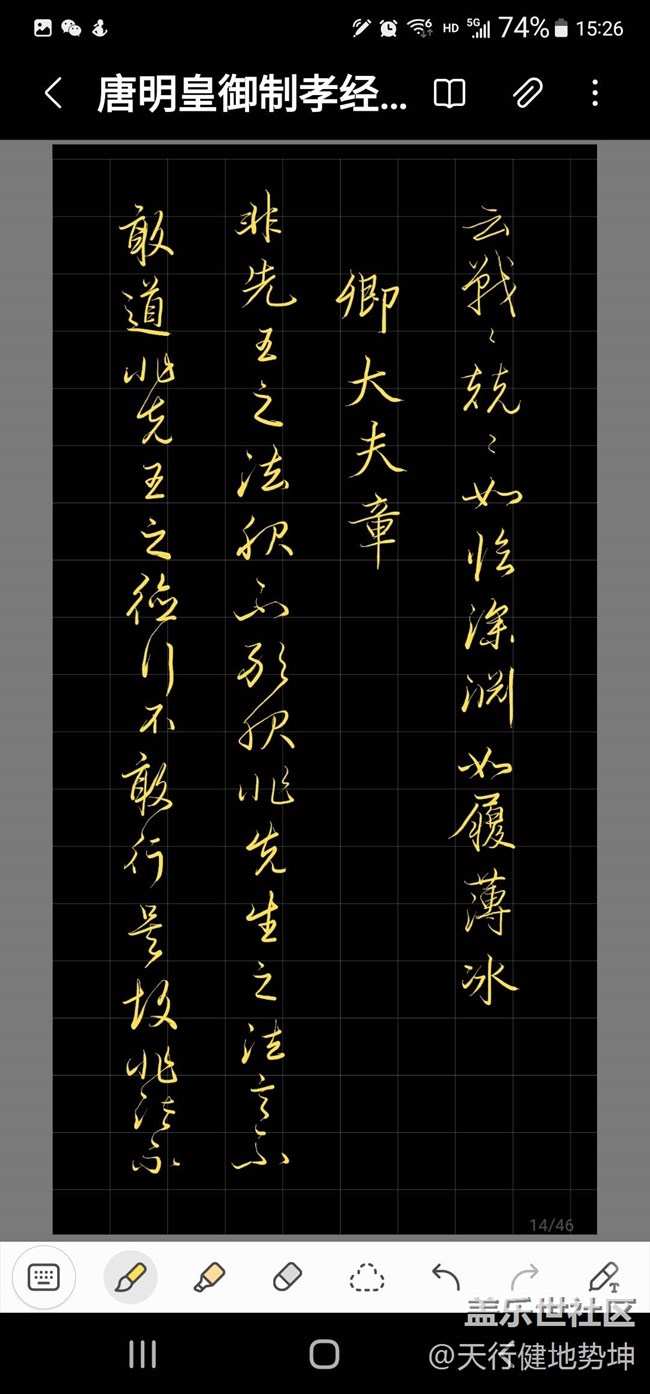 15:26
74%
HD
5G
6
唐明皇御制孝经...
云戰〻兢〻如临深渊如履薄冰
卿大夫章
非先王之法服不敢服非先生之法言不
敢道非先王之德行不敢行是故非法不
14/46
T
盖乐世社区
@天行健地势坤